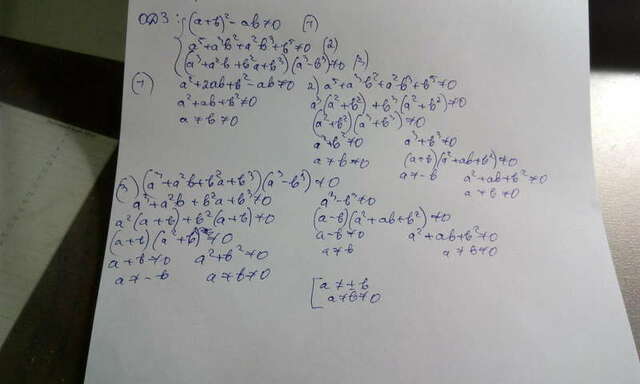 ОДЗ: { (a+b)² - ab ≠ 0 (1)
a⁵+a³b²+a²b³+b⁵ ≠ 0 (2)
(a³+a²b+b²a+b³)(a³-b³) ≠ 0 (3)
(1) a²+2ab+b²-ab ≠ 0
a²+ab+b² ≠ 0
a ≠ b ≠ 0
2) a⁵+a³b²+a²b³+b⁵ ≠ 0
a³(a²+b²)+b³(a²+b²) ≠ 0
(a²+b²)(a³+b³) ≠ 0
a²+b² ≠ 0 a³+b³ ≠ 0
a ≠ b ≠ 0 (a+b)(a²+ab+b²) ≠ 0
a ≠ -b a²+ab+b² ≠ 0
a ≠ b ≠ 0
(3) (a³+a²b+b²a+b³)(a³-b³) ≠ 0
a³+a²b+b²a+b³ ≠ 0 a³-b³ ≠ 0
a²(a+b)+b²(a+b) ≠ 0 (a-b)(a²+ab+b²) ≠ 0
(a+b)(a²+b²) ≠ 0 a-b ≠ 0 a²+ab+b² ≠ 0
a+b ≠ 0 a²+b² ≠ 0 a ≠ b a ≠ b ≠ 0
a ≠ -b a ≠ b ≠ 0
[ a ≠ ±b
a ≠ b ≠ 0